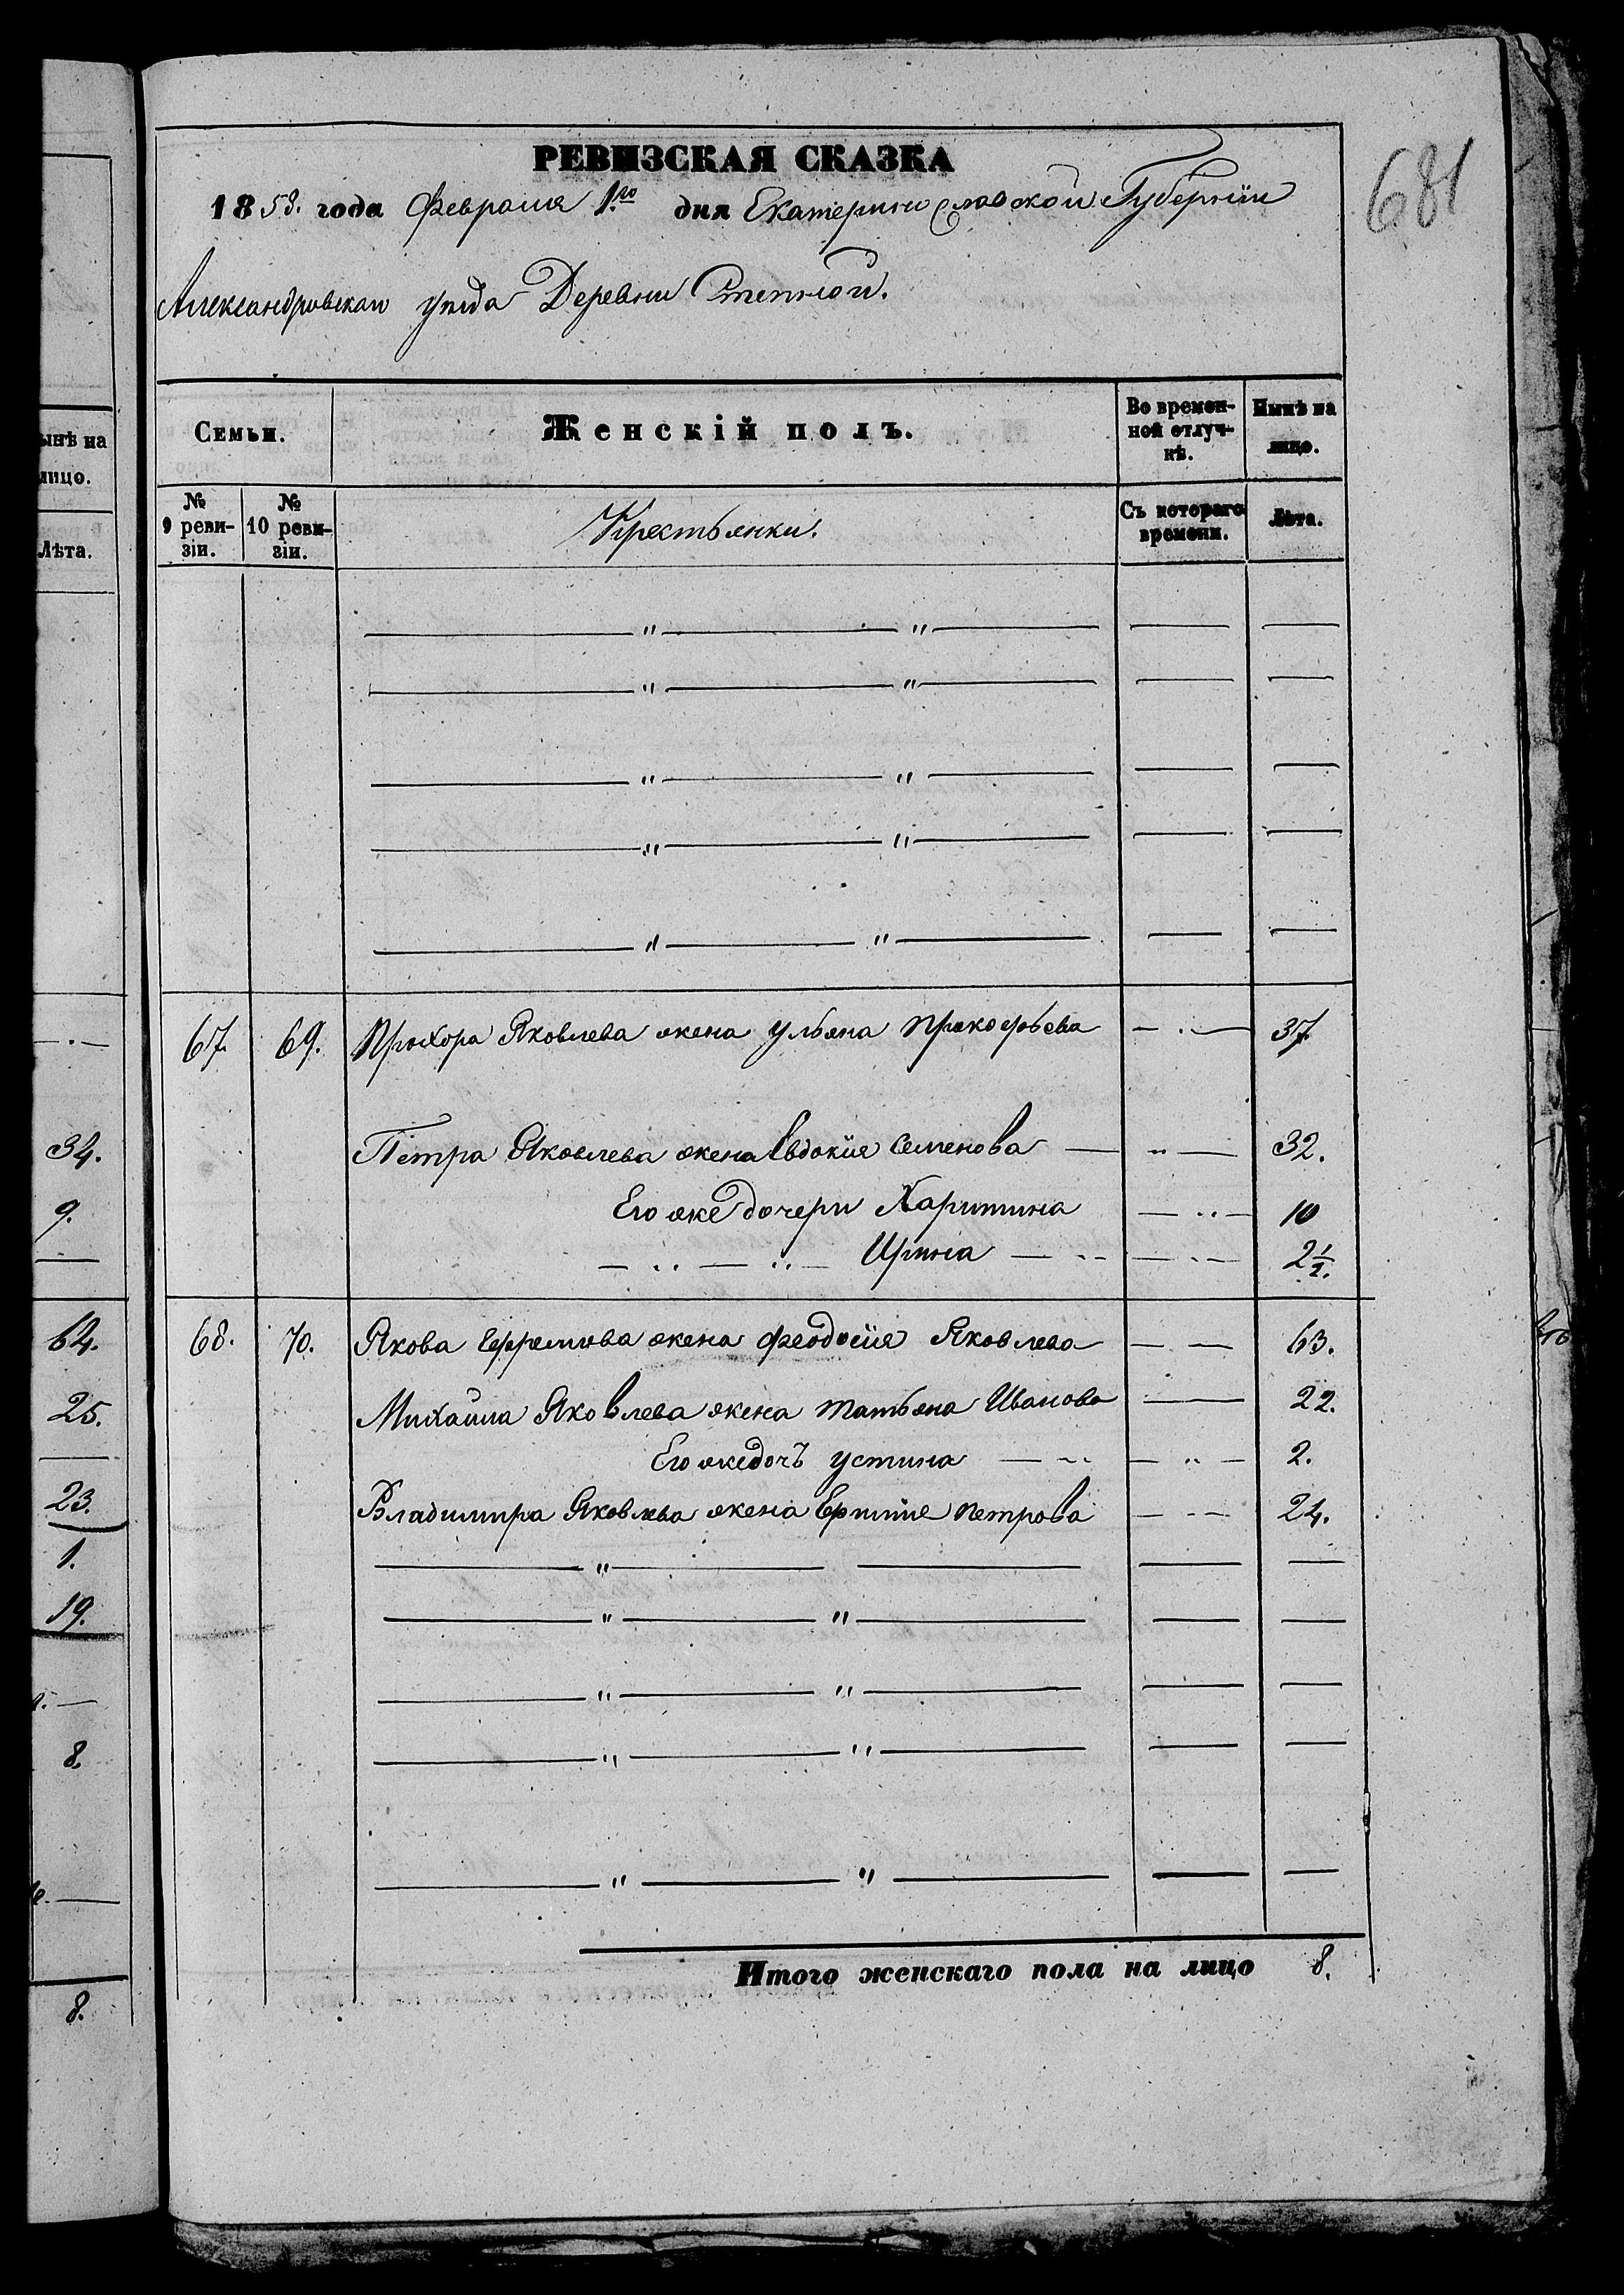 РЕВИЗСКАЯ СКАЗКА
1858. года Февраля 1.го дня Екатеринославской Губерніи
681
Александровскаго уѣзда Деревни Степной.
ынѣ на
лицо.
Лѣта.
Семьи.
Женскій полъ.
Во времен-
ной отлуч-
кѣ.
Нынѣ на
лицо.
№
9 реви-
зіи.
№
10 реви-
зіи.
Крестьянки.
Съ котораго
времени.
Лѣта.
— " — " — — —
— " — " — — —
— " — " — — —
— " — " — — —
— " — " — — —
67. 69. Прохора Яковлева жена Ульяна Прокофьева — . — 37.
34. Петра Яковлева жена Евдокія Семенова — " — 32.
9. Его же дочери Харитина — " — 10
— " — " — Ирина — " — " — 2½.
64. 68. 70. Якова Ефремова жена Феодосія Яковлева — — 63.
25. Михайла Яковлева жена Татьяна Иванова — 22.
Его же дочь Устина — " — " — 2.
23. Владимира Яковлева жена Ефимія Петрова — " — 24.
1. — " — — — —
19. — " — " — — —
— " — " — — —
8. — " — " — — —
— " — " — — —
Итого женскаго пола на лицо 8.
8.